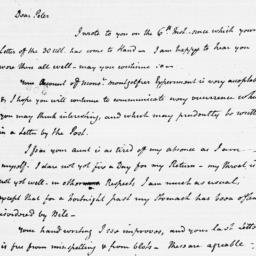 Dear Peter
I wrote to you on the 6th Inst. since which your
Letter of the 30 ult. has come to Hand — I am happy to hear you
were then all well — may you continue so —
Your account of Monsr. Montgolfier Experiment is very acceptable
& I hope you will continue to communicate every occurrence which
you may think interesting, and which may prudently be written
in a Letter by the Post.
I fear your aunt is as tired of my absence as I am
myself. I dare not yet fix a Day for my Return — my throat is
not yet well. in other Respects I am much as usual,
except that for a fortnight past my Stomach has been often
disordered by Bile —
Your hand writing I see improves, and your last Letter
is free from mispelling & from blots — These are agreeable